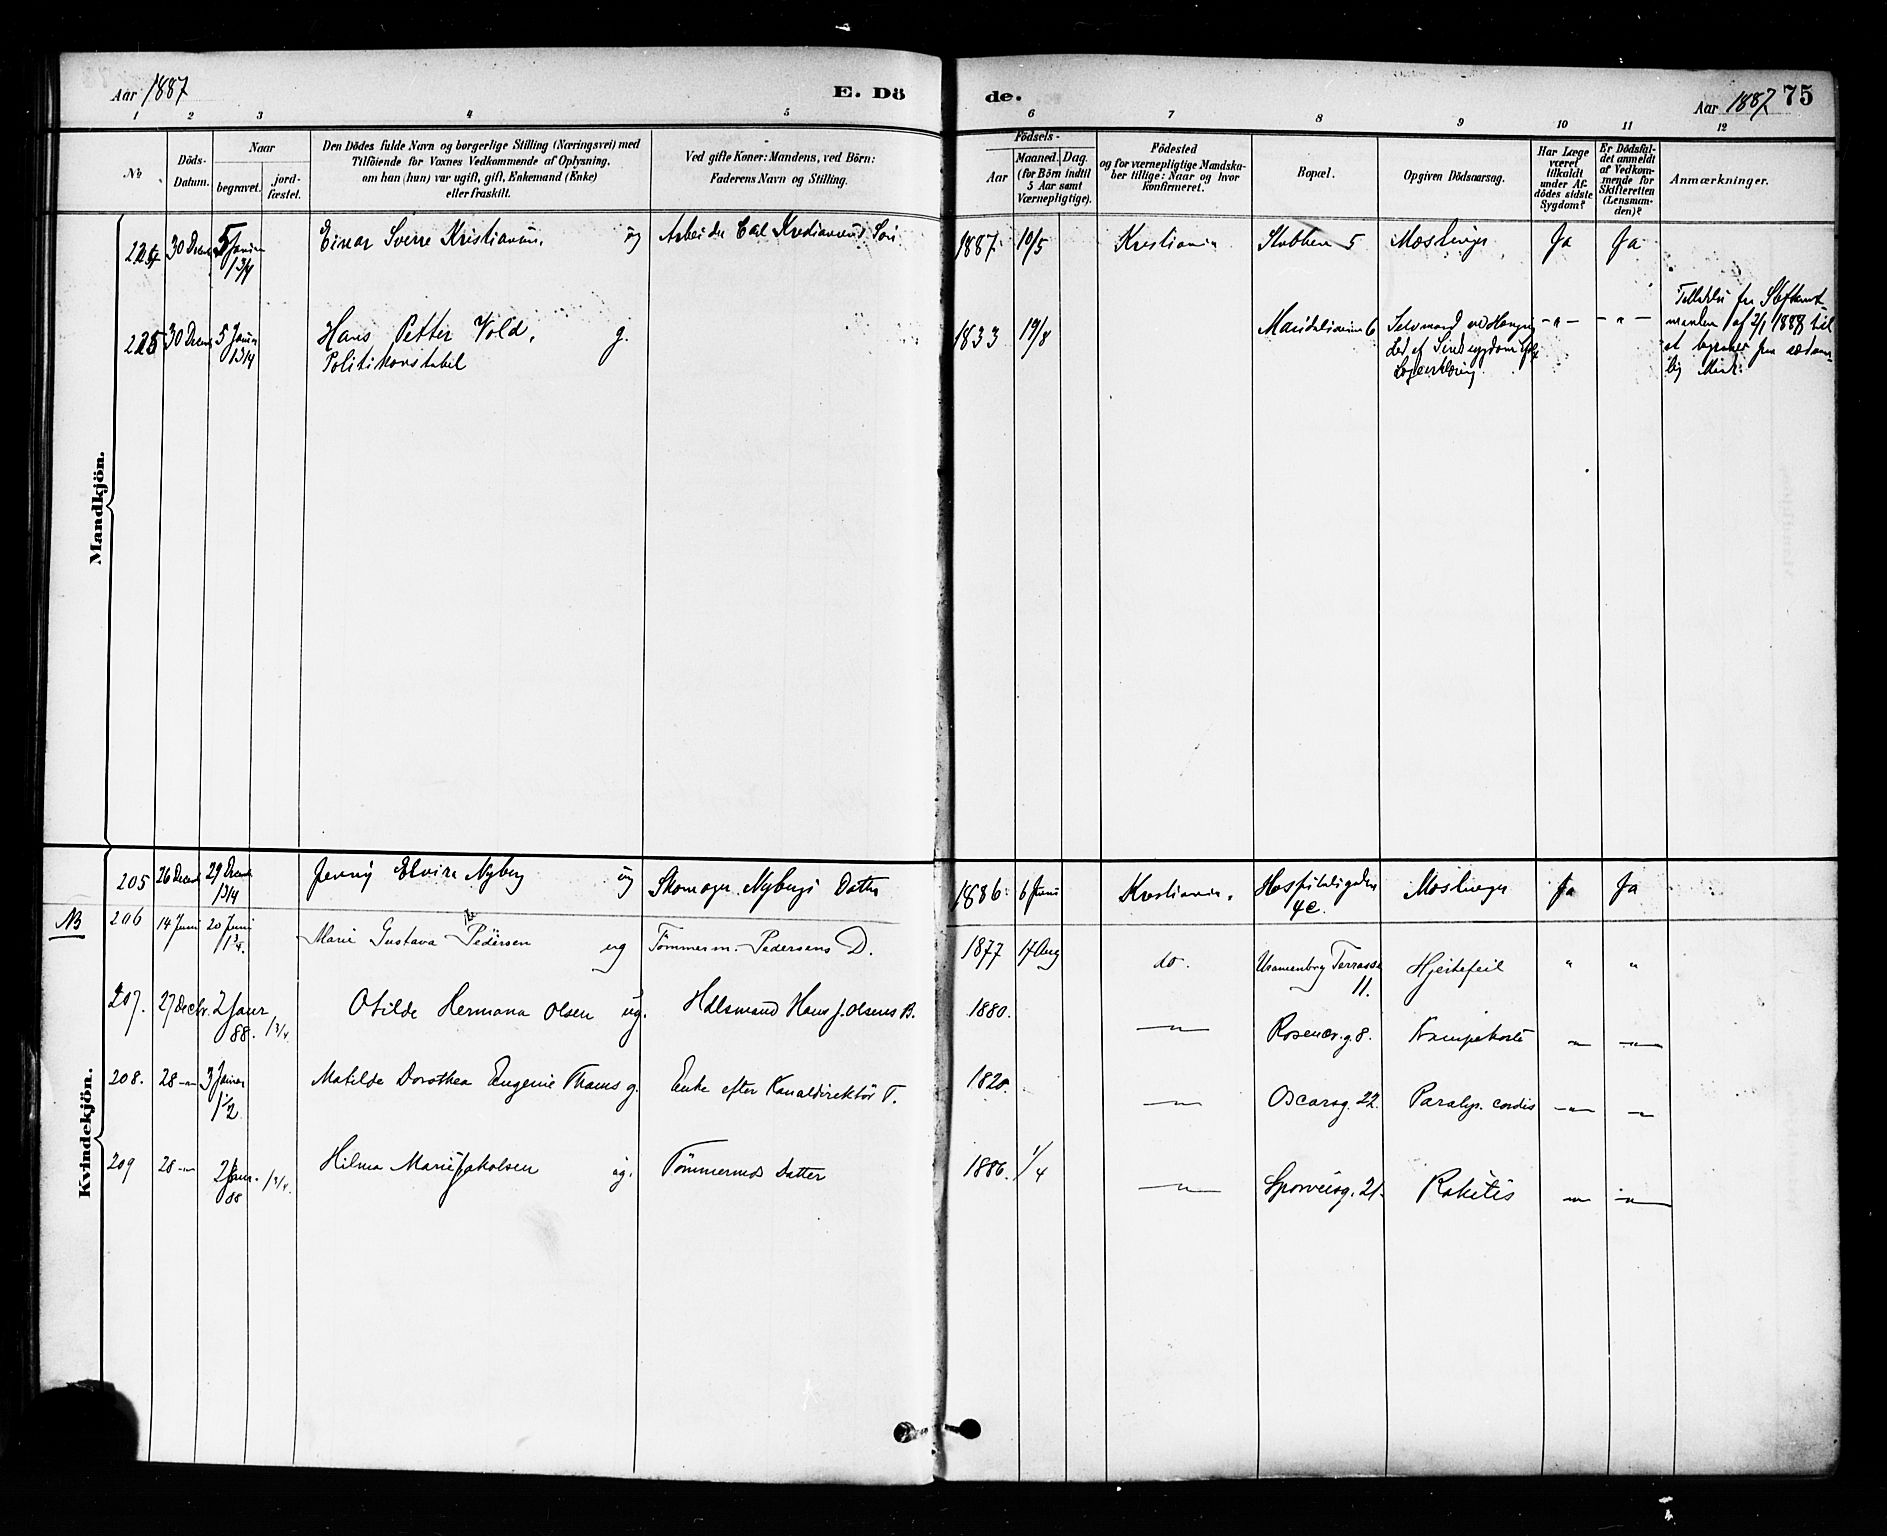 Aar 1887
E. Dö
de.
Aar 1887 75
1 2 3 4 5 6 7 8 9 10 11 12
No
Döds-
Datum.
Naar
begravet.
jord-
fæstet.
Den Dödes fulde Navn og borgerlige Stilling (Næringsvei) med
Tilföiende for Voxnes Vedkommende af Oplysning,
om han (hun) var ugift, gift, Enkemand (Enke)
eller fraskilt.
Ved gifte Koner: Mandens, ved Börn:
Faderens Navn og Stilling.
Födsels-
Aar
Maaned. Dag.
(for Börn indtil
5 Aar samt
Værnepligtige).
Födested
og for værnepligtige Mandska-
ber tillige: Naar og hvor
konfirmeret.
Bopæl.
Opgiven Dödsaarsag.
Har Læge
været
tilkaldt
under Af-
dödes sidste
Sygdom?
Er Dödsfal-
det anmeldt
af Vedkom-
mende for
Skifteretten
(Lensman-
den)?
Anmærkninger.
Mandkjön.
30 5 13/4 Einar Sverre ug Arbeider Sön 1887 10/5 Kristiania 5 Ja Ja
225 30 5 13/4 Hans Petter Vold, g. 1833 19/8 6 Selvmord ved -"- -"-
Politikonstabel
af 2/1 1888 til
Kvindekjön.
205 26 29 13/4 Jenny Elvira Nyberg ug Skomager Nybergs Datter 1886. 6 Juni Kristiania. 4c. Ja Ja
NB 206 14 Juni 20 Juni 13/4. Marie Gustava Pedersen ug Tömmerm. Pedersens D. 1877 17 Aug do. Uranienborg Terrasse 11. Hjertefeil " "
207. 27 Decbr. 2 Janr 88. 13/4. Otilde Hermana Olsen ug. Hans J. Olsens B. 1880. —"— g. 8. —"— —"—
208. 28 —"— 3 Janr 1 1/2 Matilde Dorothea Eugenie Thams g. Enke efter Kanaldirektör T. 1820. —"— Oscarsg. 22. Paralys. cordis —"— —"—
209 28 —"— 2 Janr. 88 13/4. Hilma Marie Jakobsen ug. Tömmermds Datter 1886. 1/4 —"— Sporveisg. 21. Rakitis —"— —"—